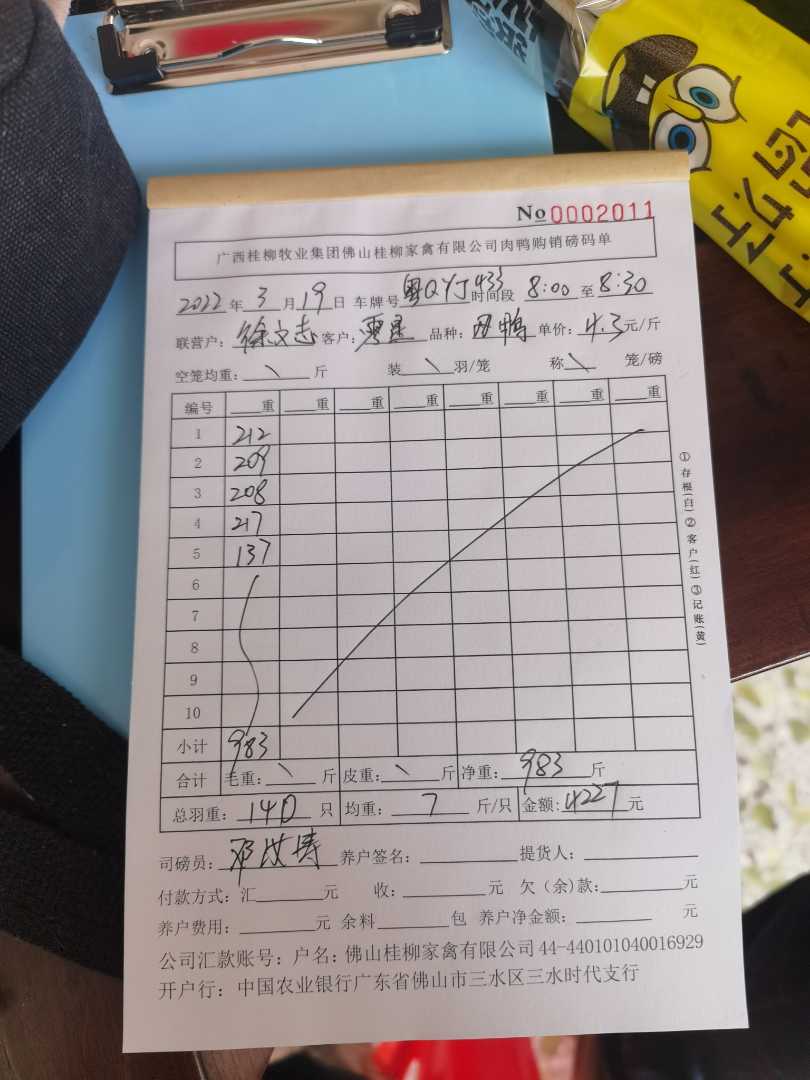 No 0002011
广西桂柳牧业集团佛山桂柳家禽有限公司肉鸭购销磅码单
2022年3月19日 车牌号粤QYJ433时间段 8:00至8:30
联营户:徐文志客户: 品种:肉鸭单价:4.3元/斤
空笼均重:\斤 装\羽/笼 称\笼/磅
编号 重 重 重 重 重 重 重 重
1 212
2 209
3 208
4 217
5 137
6
7
8
9
10
小计 983
合计 毛重:\斤 皮重:\斤 净重:983斤
总羽重:140只 均重:7斤/只 金额:4227元
司磅员:邓 养户签名: 提货人:
付款方式:汇 元 收: 元 欠(余)款: 元
养户费用: 元 余料 包 养户净金额: 元
公司汇款账号:户名:佛山桂柳家禽有限公司44-440101040016929
开户行:中国农业银行广东省佛山市三水区三水时代支行
①存根(白)②客户(红)③记账(黄)